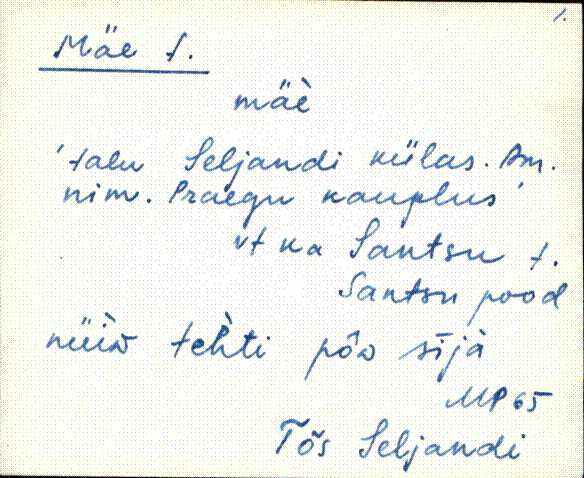 1.
Mäe t.
mäè
'talu Seljandi külas. Am.
nim. Praegu kauplus'
vt ka Santsu t.
Santsu pood
tehti sījà
MP 65
Tõs Seljandi